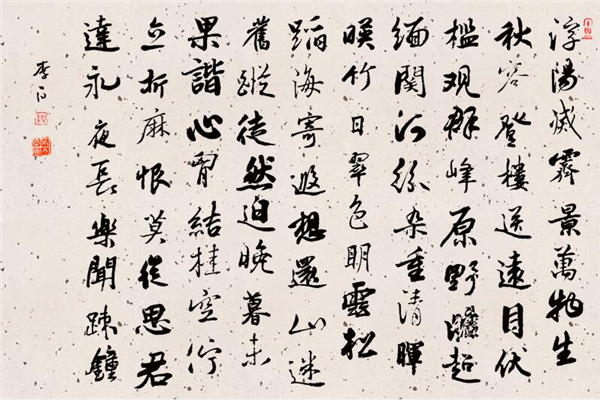 浮陽滅霽景萬物生
秋容登樓送遠目伏
檻观群峰原野曠超
緬関河紛杂重清暉
暎竹日翠色明雲松
蹈海寄遐想還山迷
舊蹤徒然迫晚暮未
果諧心胷結桂空佇
立折麻恨莫從思君
達永夜長樂聞踈鐘
李